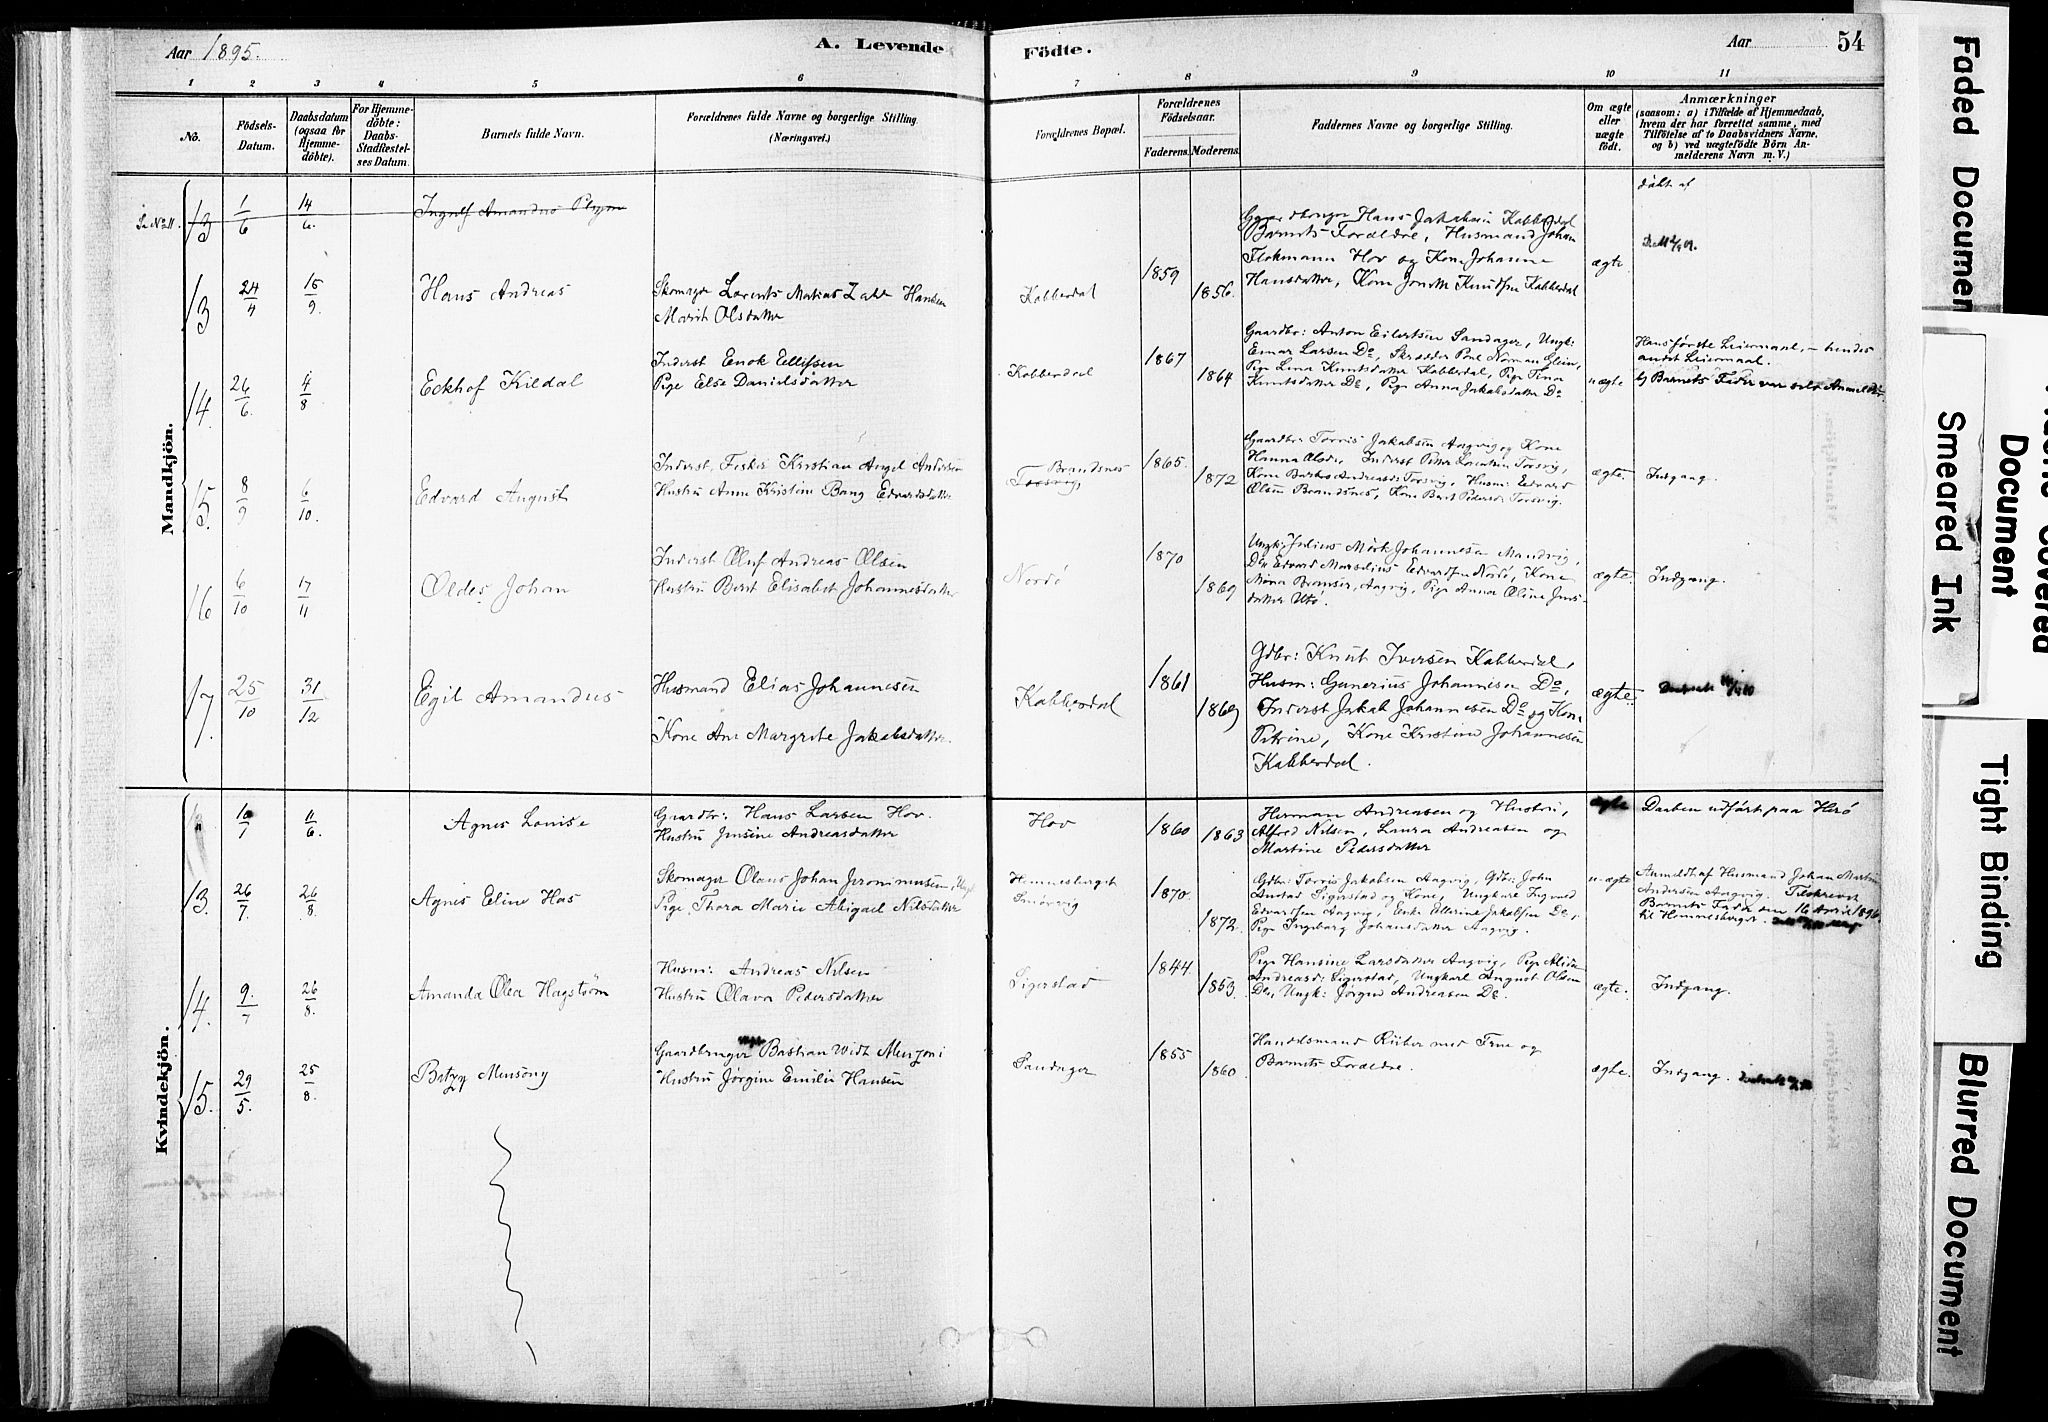 Aar 1895.
A. Levende
Födte.
Aar
54
1 2 3 4 5 6 7 8 9 10 11
No.
Födsels-
Datum.
Daabsdatum
(ogsaa for
Hjemme-
döbte).
For Hjemme-
döbte:
Daabs-
Stadfæstel-
ses Datum.
Barnets fulde Navn.
Forældrenes fulde Navne og borgerlige Stilling.
(Næringsvei.)
Forældrenes Bopæl.
Forældrenes
Födselsaar.
Faderens. Moderens.
Faddernes Navne og borgerlige Stilling.
Om ægte
eller
uægte
födt.
Anmærkninger
(saasom: a) i Tilfælde af Hjemmedaab,
hvem der har forrettet samme, med
Tilföielse af to Daabsvidners Navne,
og b) ved uægtefödte Börn An-
melderens Navn m. V.)
Mandkjön.
13 1/6 14/6 Ingolf Amandus
døbt af
13 24/4 15/9 Hans Andreas
Skomager Lorents Matias Hansen
Marit Olsdatter
Kabberdal
1859
1856.
Gaardbruger Hans Jakobsen Kabberdal
Barnets Forældre, Husmand Johan
Flokmann Hov og Kone Johanna
Hansdatter, Kone Knudsen Kabberdal
ægte
14 26/6 4/8 Eckhof Kildal
Inderst Enok Ellifsen
Pige Else Danielsdatter
Kabberdal
1867
1864
Gaardbr: Anton Eilertsen Sandager, Ungk:
Einar Larsen Do, Skrædder
Pige Lina Knutsdatter Kabberdal, Pige Tina
Knutsdatter Do, Pige Anna Jakobsdatter Do
uægte
Hans første Leiermaal, - hendes
andet Leiermaal.
b) Barnets Fader var selv Anmelder.
15. 8/9 6/10. Edvard August
Inderst, Fisker Kristian Angel Andersen
Hustru Anne Kristine Bang Edvardsdatter
Brandsnes
Torsvig,
1865.
1872
Gaardbr: Torris Jakobsen Aagvig og Kone
Hanna Inderst Peter Lorentsen Torsvig,
Kone Andreasd: Torsvig, Husm: Edvard
Olsen Brandsnes, Kone Berit Pedersd: Torsvig.
ægte.
Indgang.
16 6/10 17/11 Oldes Johan
Inderst Oluf Andreas Olsen
Hustru Berit Elisabet Johannesdatter
Nordø
1870
1869
Ungk: Julius Mørk Johannesen Mandvig,
Do Edvard Marselius Edvardsen Nordø, Kone
Aagvig, Pige Anna Oline Jens-
datter Utø.
ægte.
Indgang.
17. 25/10 31/12 Egil Amandus
Husmand Elias Johannesen
Kone Ane Margrete Jakobsdatter.
Kabberdal
1861
1869
Gdbr: Knut Iversen Kabberdal,
Husm: Gunerius Johannesen Do,
Inderst Jakob Johannesen Do og Kone
Petrine, Kone Kristine Johannesen
Kabberdal.
ægte.
Kvindekjön.
10/7 11/6 Agnes Louise
Gaardbr: Hans Larsen Hov.
Hustru Jensine Andreasdatter
Hov
1860
1863
Herman Andreasen og Hustru,
Alfred Nilsen, Laura Andreasen og
Martine Pedersdatter
ægte
Daaben udført paa Herø
13. 26/7. 26/8 Agnes Eline Has
Skomager Olaus Johan Jeronimusen, Ungk
Pige Thora Marie Abigael Nilsdatter
Hemnesberget
Smørvig
1870.
1872.
Gdbr: Torris Jakobsen Aagvig, Gdbr: John
Sigerstad og Kone, Ungkarl Ingvald
Edvardsen Aagvig, Enke Ellerine Jakobsen Do,
Pige Ingeborg Johansdatter Aagvig.
u-ægte
Anmeldt af Husmand Johan Martin
Andersen Aagvig. Tilskrevet
Barnets Fader den 16 April 1896
til Hemnesberget.
14. 9./7 26/8. Amanda Olea Hagstrøm
Husm: Andreas Nilsen
Hustru Olava Pedersdatter
Sigerstad
1844
1853.
Pige Hansine Larsdatter Aagvig, Pige Alida
Andreasd: Sigerstad, Ungkarl August Olsen
Do, Ungk: Jørgen Andreasen Do.
ægte.
Indgang.
15. 29/5. 25/8. Betzy Mensony
Gaardbruger Bastian Widt Menzoni
Hustru Jørgine Emilie Hansen
Sandager
1855
1860.
Handelsmand Riiber med Frue og
Barnets Forældre.
ægte.
Indgang.
Faded Document
Document
Smeared Ink
Tight Binding
Blurred Document